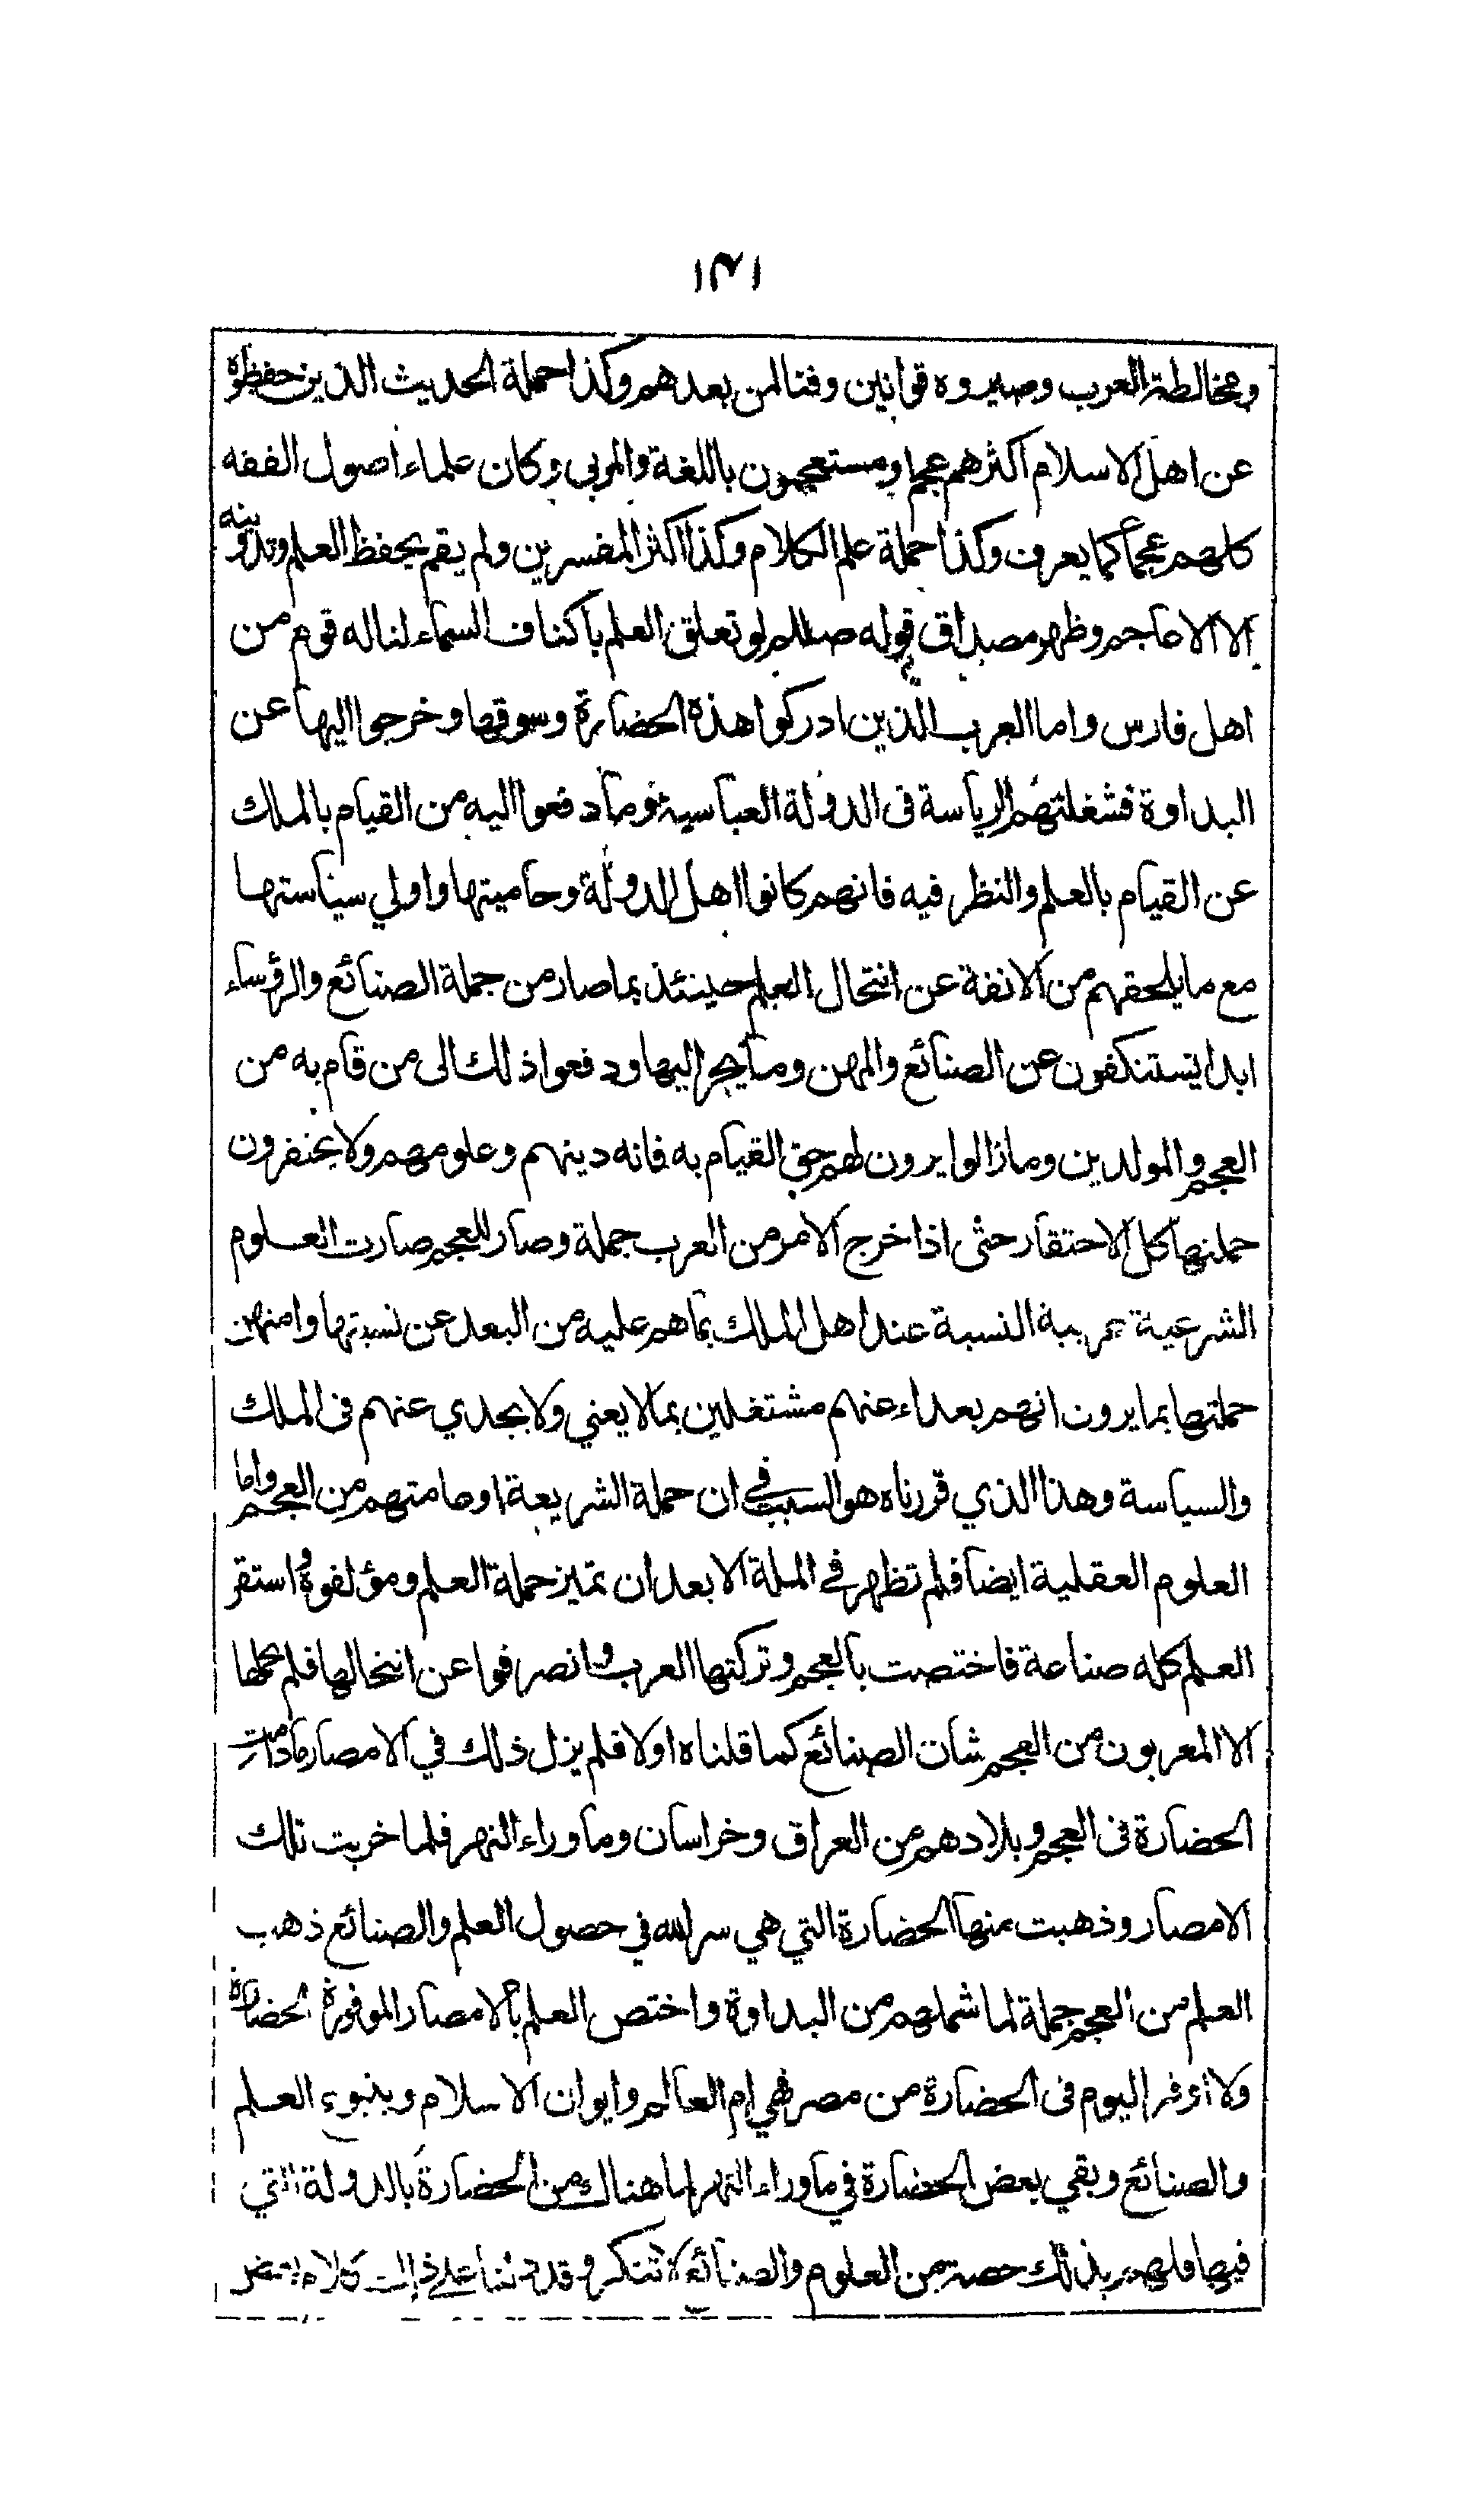 ١٣١
ومخالطة العرب وصيروه قوانين وفنا لمن بعدهم وكذا حملة الحديث الذين حفظوه
عن اهل الاسلام اكثرهم عجم او مستعجمون باللغة والمربى وكان علماء اصول الفقه
كلهم عجما كما يعرف وكذا حملة علم الكلام وكذا اكثر المفسرين ولم يقم بحفظ العلم وتدوينه
الا الاعاجم وظهر مصداق قوله صللم لو تعلق العلم باكناف السماء لناله قوم من
اهل فارس واما العرب الذين ادركوا هذة الحضارة وسوقها وخرجوا اليها عن
البداوة فشغلتهم الرياسة فى الدولة العباسية وما دفعوا اليه من القيام بالملك
عن القيام بالعلم والنظر فيه فانهم كانوا اهل الدولة وحاميتها واولي سياستها
مع ما يلحقهم من الانفة عن انتحال العلم حينئذ بما صار من جملة الصنائع والرؤساء
ابدا يستنكفون عن الصنائع والمهن وما يجر اليها ودفعوا ذلك الى من قام به من
العجم والمولدين وما زالوا يرون لهم حق القيام به فانه دينهم وعلومهم ولا يحتقرون
حملتها كل الاحتقار حتى اذا خرج الامر من العرب جملة وصار للعجم صارت العلوم
الشرعية غريبة النسبة عند اهل الملك بما هم عليه من البعد عن نسبتها وامتهن
حملتها بما يرون انهم بعداء عنهم مشتغلين بما لا يعني ولا يجدي عنهم فى الملك
والسياسة وهذا الذي قررناه هو السبب في ان حملة الشريعة او عامتهم من العجم واما
العلوم العقلية ايضا فلم تظهر في الملة الا بعد ان تميز حملة العلم ومؤلفوه واستقر
العلم كله صناعة فاختصت بالعجم وتركتها العرب وانصرفوا عن انتحالها فلم يحملها
الا المعربون من العجم شان الصنائع كما قلناه اولا فلم يزل ذلك في الامصار ما دامت
الحضارة فى العجم وبلادهم من العراق وخراسان وما وراء النهر فلما خربت تلك
الامصار وذهبت منها الحضارة التي هي سر الله في حصول العلم والصنائع ذهب
العلم من العجم جملة لما شملهم من البداوة واختص العلم بالامصار الموفورة الحضارة
ولا اوفر اليوم فى الحضارة من مصر فهي ام العالم وايوان الاسلام وينبوع العلم
والصنائع وبقي بعض الحضارة في ما وراء النهر لما هناك من الحضارة بالدولة التي
فيها فلهم بذلك حصة من العلوم والصنائع لا تنكر وقد دلنا على ذلك كلام بعض